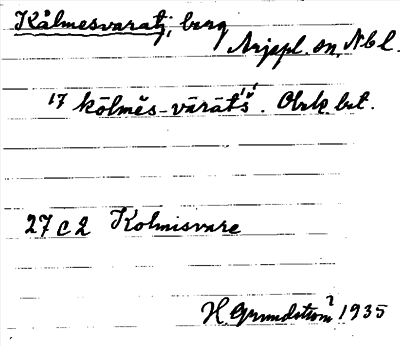 Kålmesvaratj, berg
Arjepl. sn, Nbl.
17 kōlmĕs-vārātš́. Obek. bet.
27 C 2 Kolmisvare
H. Grundström 1935